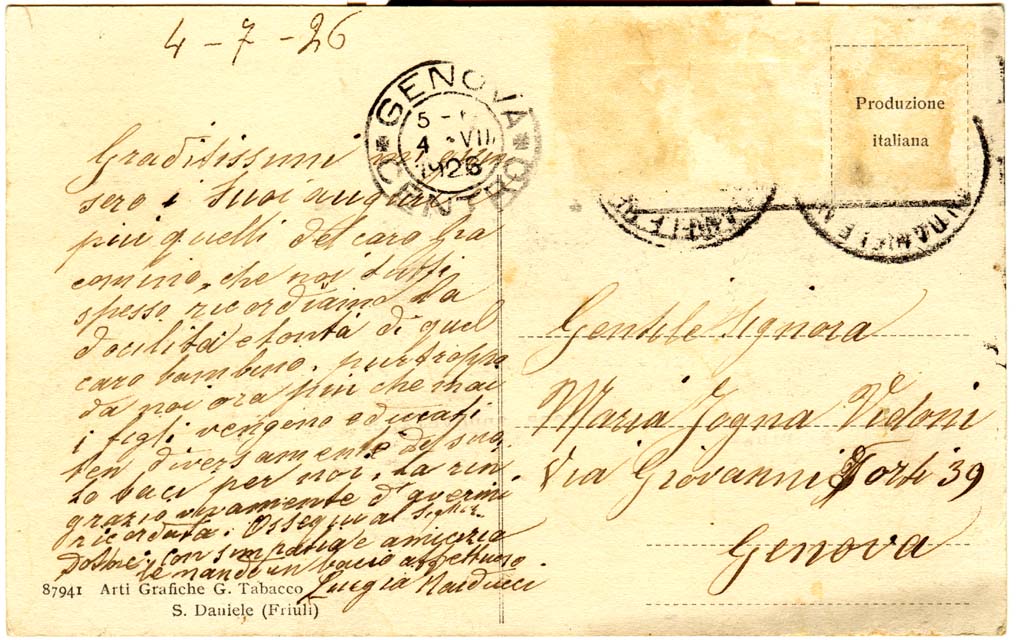 4-7-26
GENOVA CENTRO
5-
4 VII
1926
Produzione
italiana
DANIELE
DANIELE
Graditissimi mi giun
sero i suoi auguri
più quelli del caro Gia
comino, che noi tutti
spesso ricordiamo la
docilità e bontà di quel
caro bambino. purtroppo
da noi ora più che mai
i figli vengono educati
ben diversamente. Del suo
lo baci per noi. La rin
grazio vivamente d'avermi
ricordata. Ossequi al Sigr.
Dottore; con simpatia e amicizia
le mando un bacio affettuoso
Luigia Narducci
Gentile Signora
Maria Jogna Vidoni
Via Giovanni Torti 39
Genova
87941 Arti Grafiche G. Tabacco
S. Daniele (Friuli)